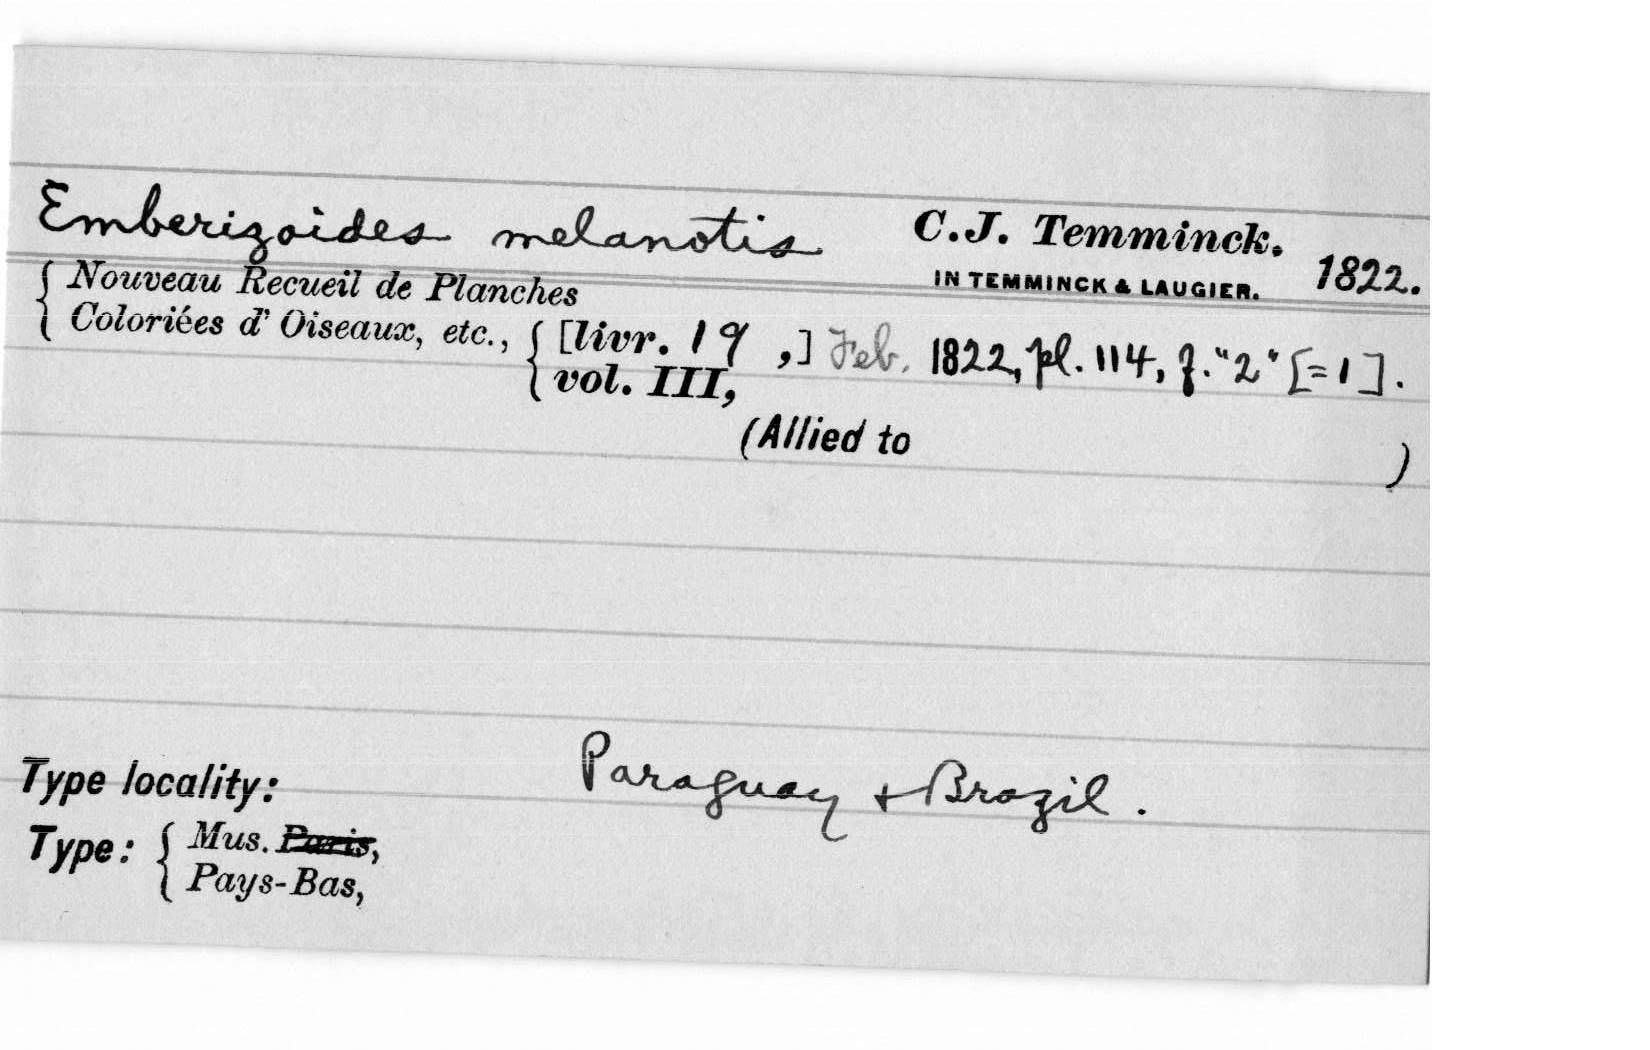 Emberizoides melanotis C.J. Temminck.
IN TEMMINCK & LAUGIER. 1822.
{ Nouveau Recueil de Planches
Coloriées d' Oiseaux, etc., { [livr. 19 ,] Feb. 1822, pl. 114, f. "2" [=1].
vol. III,
(Allied to )
Type locality: Paraguay + Brazil.
Type: { Mus. Paris,
Pays-Bas,